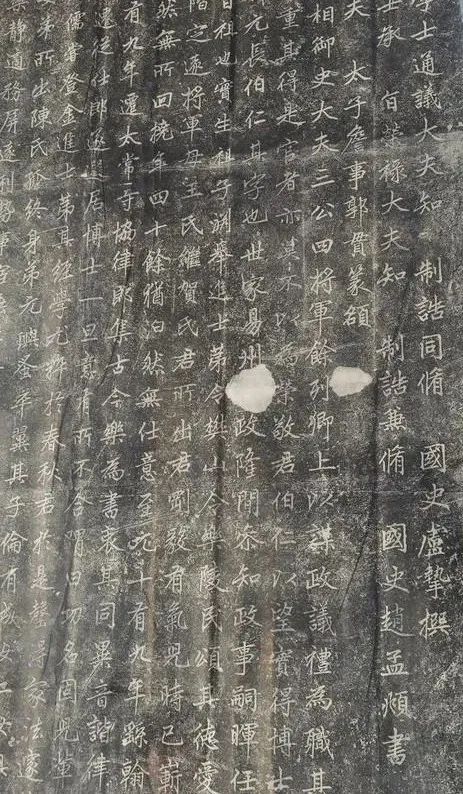 學士通議大夫知 制誥同脩 國史盧摯撰
士承 旨榮祿大夫知 制誥兼脩 國史趙孟頫書
夫 太子詹事郭貫篆額
相御史大夫三公四將軍餘列卿上以謀政議禮為職其
重其得是官者亦其不以為榮敬君伯仁以望實得博士
元長伯仁其字也世家易州 政隆間參知政事嗣暉任
曰祖也實生祖子淵舉進士第令樂山令樂陵民頌其德愛
階定遠將軍母王氏繼賀氏君所出君劬發有氣兒時已嶄
然無所回撓年四十餘猶泊然無仕意至元十有九年繇翰
有九年遷太常寺協律郎集古今樂為書衷其同異音諧律
遷從仕郎遂是居博士一旦意有所不合喟曰功名固兒
儒嘗登金進士第其經學尤粹於春秋君於是 得家法
第所出陳氏終身弟元興蚤卒 其子倫有成
靜適務屏遠利